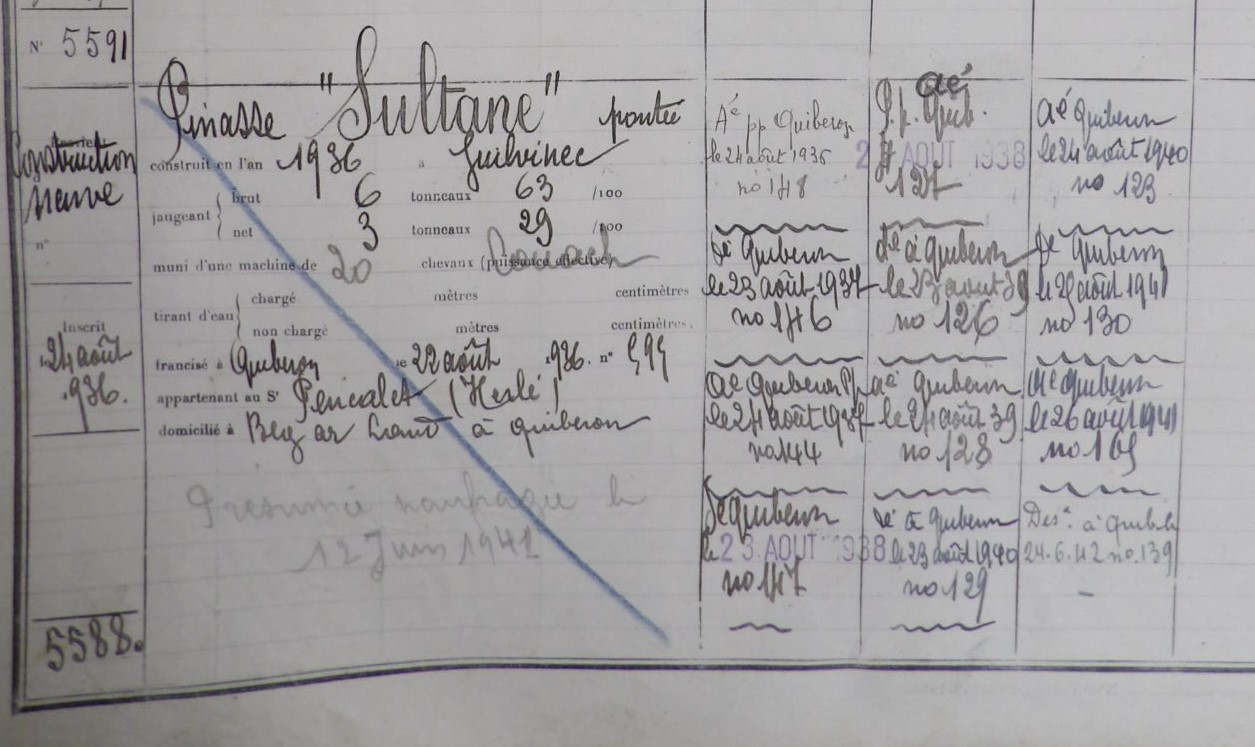 N° 5591
Construction
neuve
n°
Inscrit
24 août
1936.
5588.
Pinasse "Sultane" pontée
construit en l'an 1936 à Guilvinec
jaugeant { brut 6 tonneaux 63 /100
net 3 tonneaux 29 /100
muni d'une machine de 20 chevaux (puissance effective)
tirant d'eau { chargé mètres centimètres
non chargé mètres centimètres.
francisé à Quiberon le 22 août 1936. n°
appartenant au Sr Pencalet (Herlé)
domicilié à Beg ar Land à Quiberon
Présumé naufragé le
12 Juin 1941
Aé pp Quiberon
le 24 août 1936
no 148
Dé Quiberon
le 23 août 1937
no 146
aé Quiberon
le 24 août 1937
no 144
Dé Quiberon
le 23. AOUT 1938
no 147
aé
P.p. Quib.
AOUT 1938
127
Dé à Quiberon
le 23 août 39
no 126
aé Quiberon
le 24 août 39
no 128
Dé à Quiberon
le 23 août 1940
no 129
aé Quiberon
le 24 août 1940
no 123
Dé Quiberon
le 25 août 1941
no 130
Aé Quiberon
le 26 août 1941
no 165
Desé à Quib
24.6.42 no.139